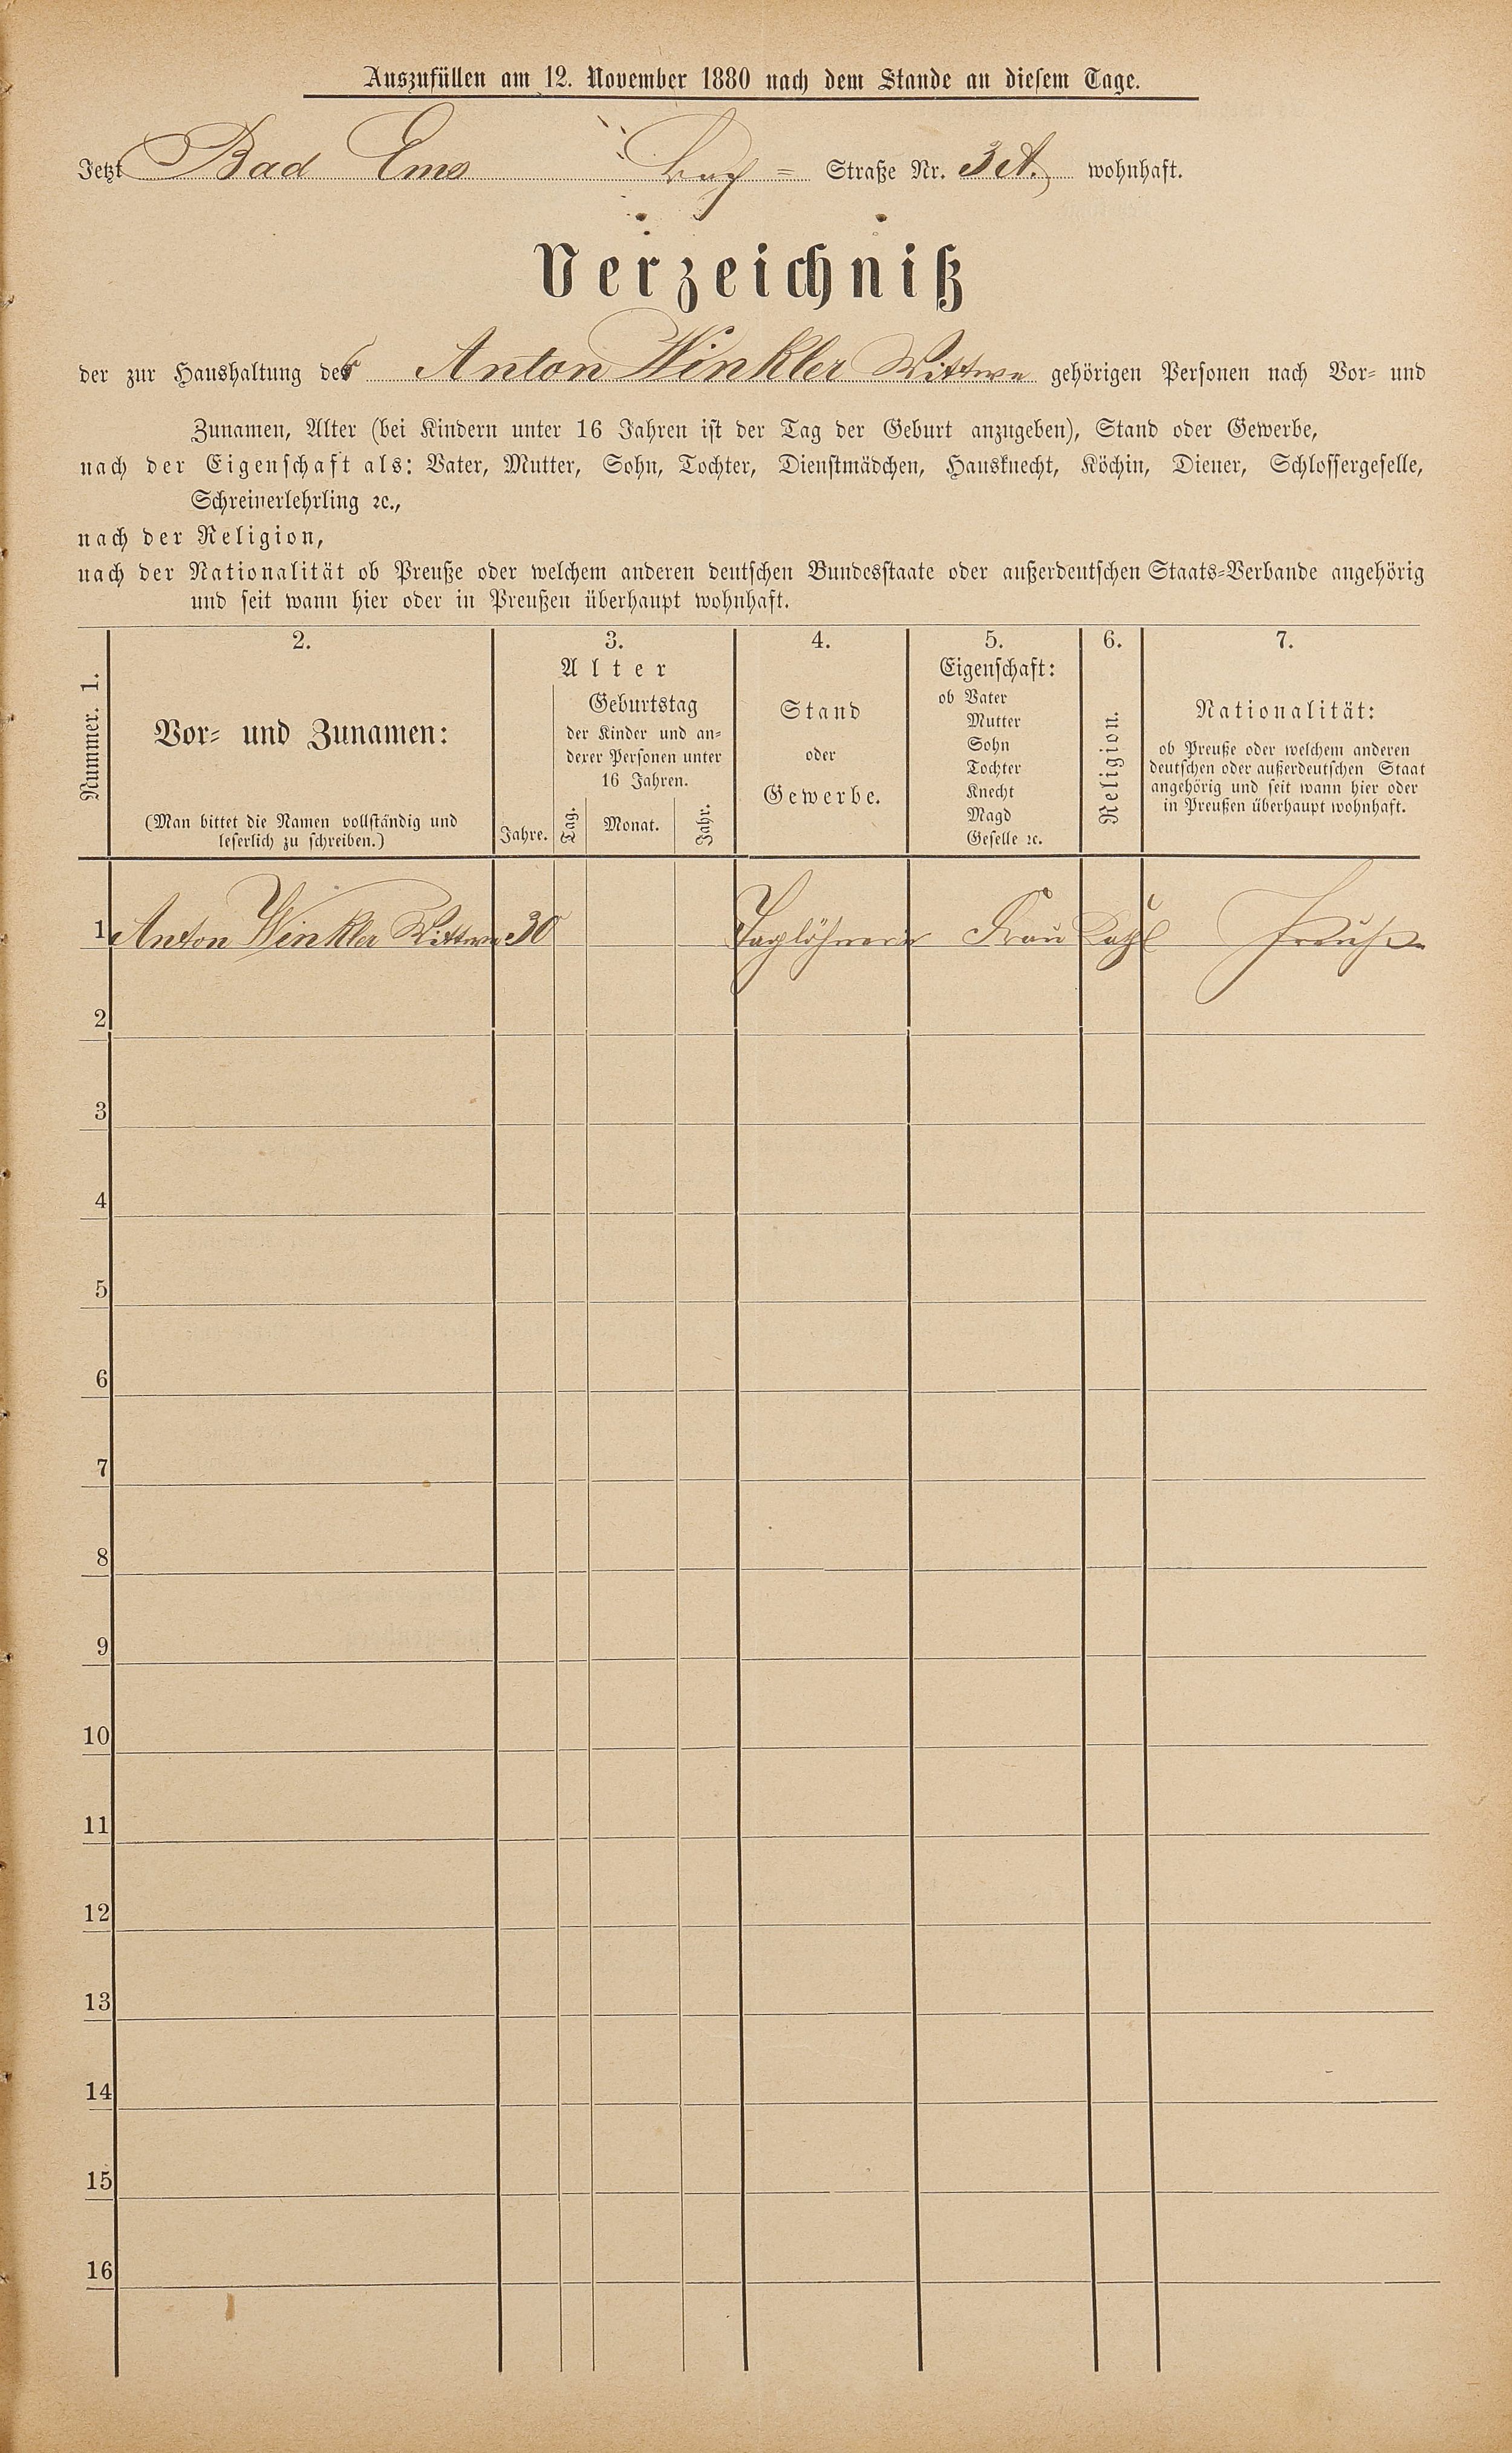 Auszufüllen am 12. November 1880 nach dem Stande an diesem Tage.
Jetzt Bad Ems Bach = Straße Nr. 3 A. wohnhaft.
Verzeichniß
der zur Haushaltung der Anton Winkler Wittwe gehörigen Personen nach Vor- und
Zunamen, Alter (bei Kindern unter 16 Jahren ist der Tag der Geburt anzugeben), Stand oder Gewerbe,
nach der Eigenschaft als: Vater, Mutter, Sohn, Tochter, Dienstmädchen, Hausknecht, Köchin, Diener, Schlossergeselle,
Schreinerlehrling ꝛc.,
nach der Religion,
nach der Nationalität ob Preuße oder welchem anderen deutschen Bundesstaate oder außerdeutschen Staats-Verbande angehörig
und seit wann hier oder in Preußen überhaupt wohnhaft.
Nummer. 1.
2.
Vor- und Zunamen:
(Man bittet die Namen vollständig und
leserlich zu schreiben.)
3.
Alter
Jahre.
Geburtstag
der Kinder und an-
derer Personen unter
16 Jahren.
Tag.
Monat.
Jahr.
4.
Stand
oder
Gewerbe.
5.
Eigenschaft:
ob Vater
Mutter
Sohn
Tochter
Knecht
Magd
Geselle ꝛc.
6.
Religion.
7.
Nationalität:
ob Preuße oder welchem anderen
deutschen oder außerdeutschen Staat
angehörig und seit wann hier oder
in Preußen überhaupt wohnhaft.
1 Anton Winkler Wittwe 30 Taglöhnerin Frau Kath Preuße
2
3
4
5
6
7
8
9
10
11
12
13
14
15
16